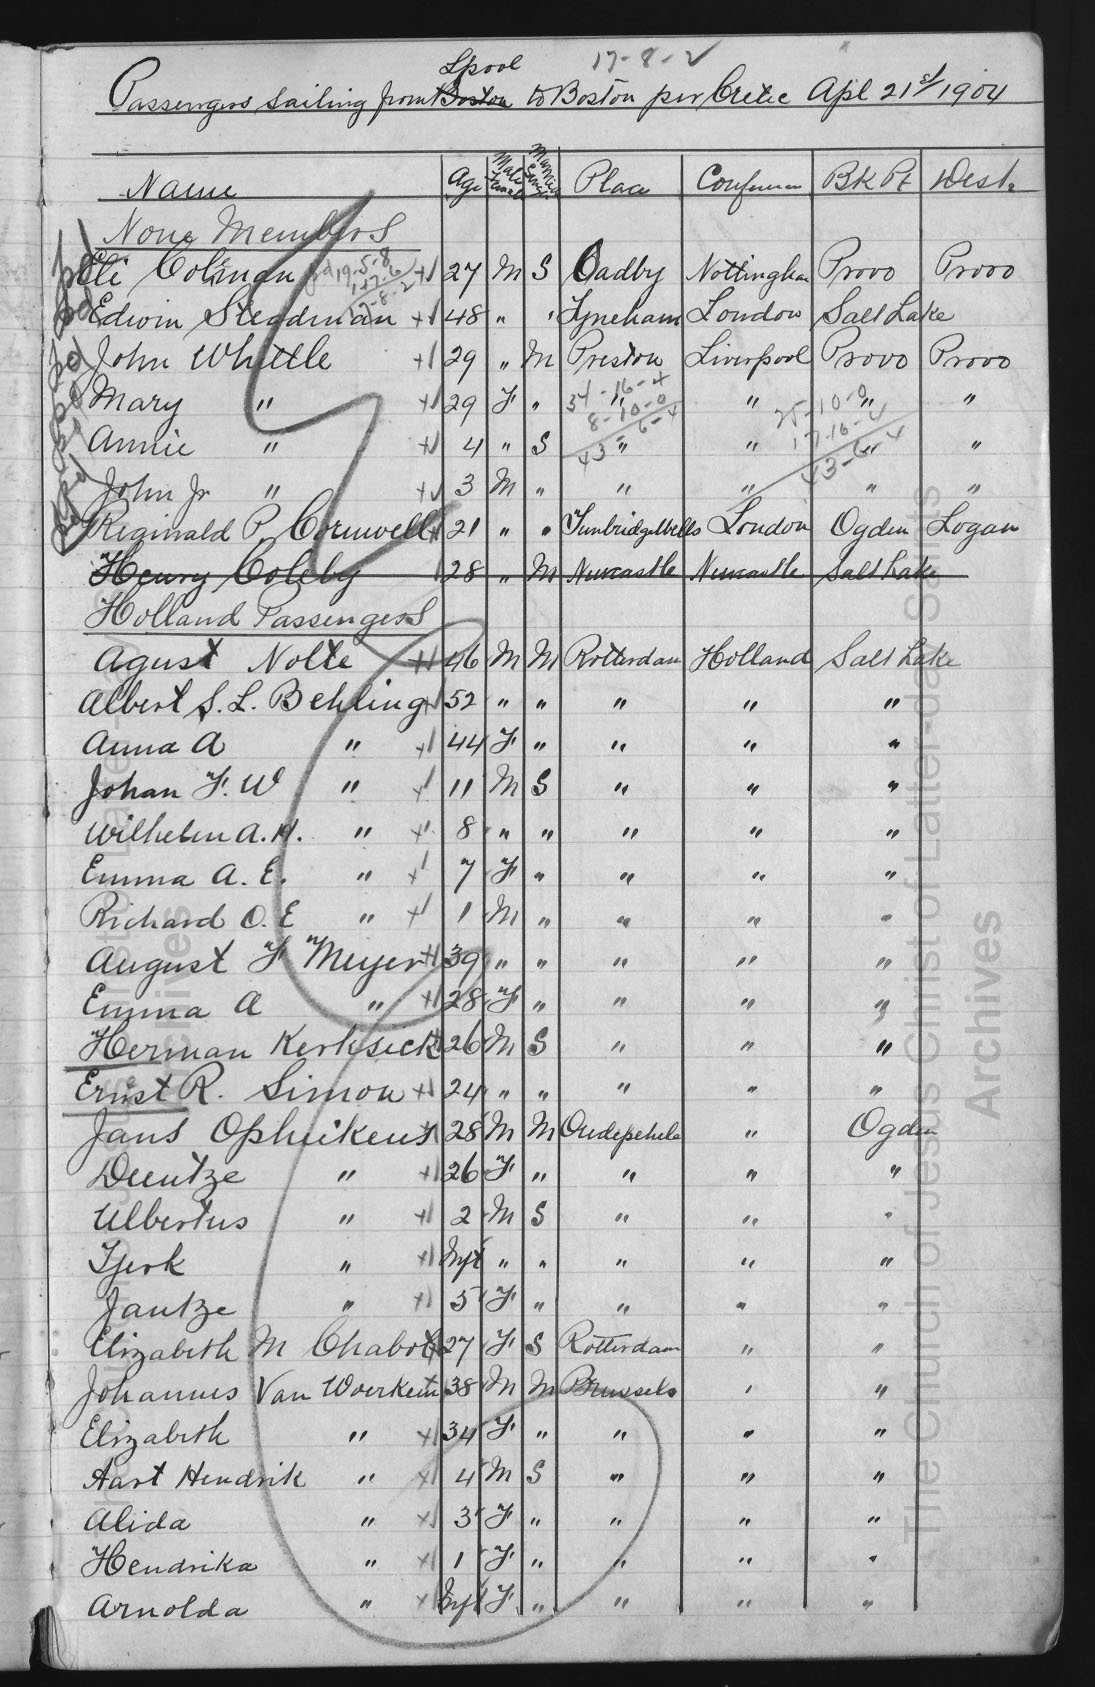 17-8-2
Lpool
Passengers sailing from Boston to Boston per Cretic Apl 21st/1904
Name Age Male Female Married Single Place Conference Bk Pt Dest.
None Members
Eli Colman 27 M S Oadby Nottingham Provo Provo
19-5-8
17-8-2
Edwin Steadman 48 " " Lyneham London Salt Lake
John Whittle 29 " M Preston Liverpool Provo Provo
Mary " 29 F " " " " "
34-16-4
8-10-0
43-6-4
25-10-0
17-16-4
43-6-4
Annie " 4 " S " " " "
John Jr " 3 M " " " " "
Reginald P. Cornwell 21 " " Tunbridge Wells London Ogden Logan
Henry Coleby 28 " M Newcastle Newcastle Salt Lake
Holland Passengers
Agust Nolte 46 M M Rotterdam Holland Salt Lake
Albert S. L. Behling 52 " " " " "
Anna A " 44 F " " " "
Johan F. W " 11 M S " " "
Wilhelm A. H. " 8 " " " " "
Emma A. E. " 7 F " " " "
Richard O. E " 1 M " " " "
August F Meyer 39 " " " " "
Emma A " 28 F " " " "
Herman Kerksieck 26 M S " " "
Ernst R. Simon 24 " " " " "
Jans Ophuikens 28 M M Oudepekela " Ogden
Deentze " 26 F " " " "
Ulbertus " 2 M S " " "
Tjerk " Inft " " " " "
Jantze " 5 F " " " "
Elizabeth M Chabot 27 F S Rotterdam " "
Johannes Van Woerkem 38 M M Brussels " "
Elizabeth " 34 F " " " "
Aart Hendrik " 4 M S " " "
Alida " 3 F " " " "
Hendrika " 1 F " " " "
Arnolda " Inft F " " " "
The Church of Jesus Christ of Latter-day Saints
Archives